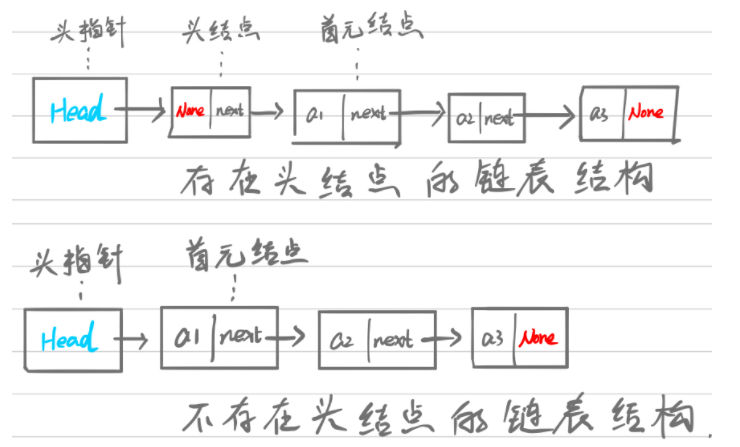 头指针 头结点 首元结点
Head None next a1 next a2 next a3 None
存在头结点的链表结构
头指针 首元结点
Head a1 next a2 next a3 None
不存在头结点的链表结构.